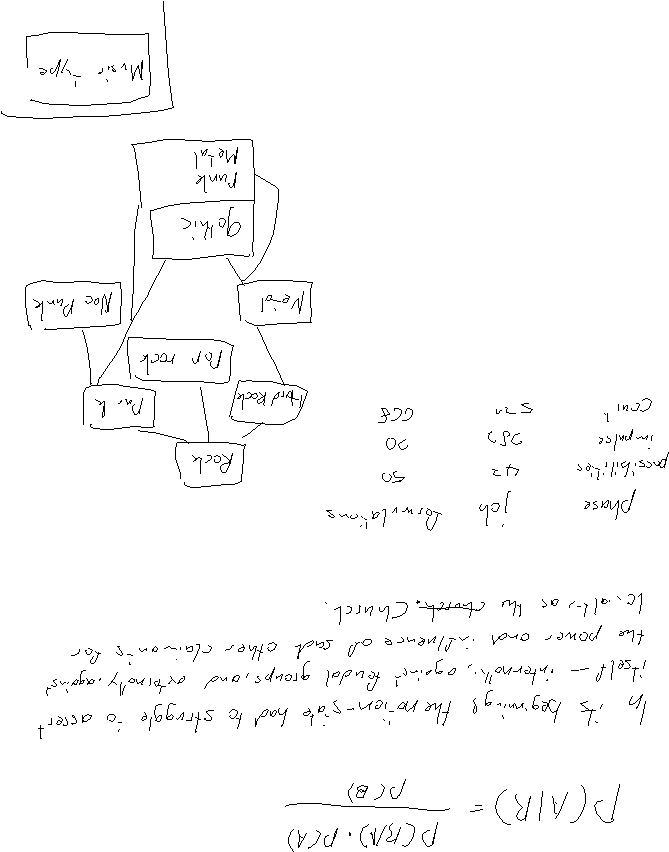 P(A|B) = P(B|A) · P(A)
P(B)
In its beginnings the nation-state had to struggle to assert
itself — internally against feudal groups, and externally against
the power and influence of such other claimants for
loyalty as the church. Church.
phase job formulations
possibilities 42 50
impulse 282 20
Rock
Hard Rock Punk
Pop rock
Metal Neo Punk
gothic
Punk
Metal
Music type